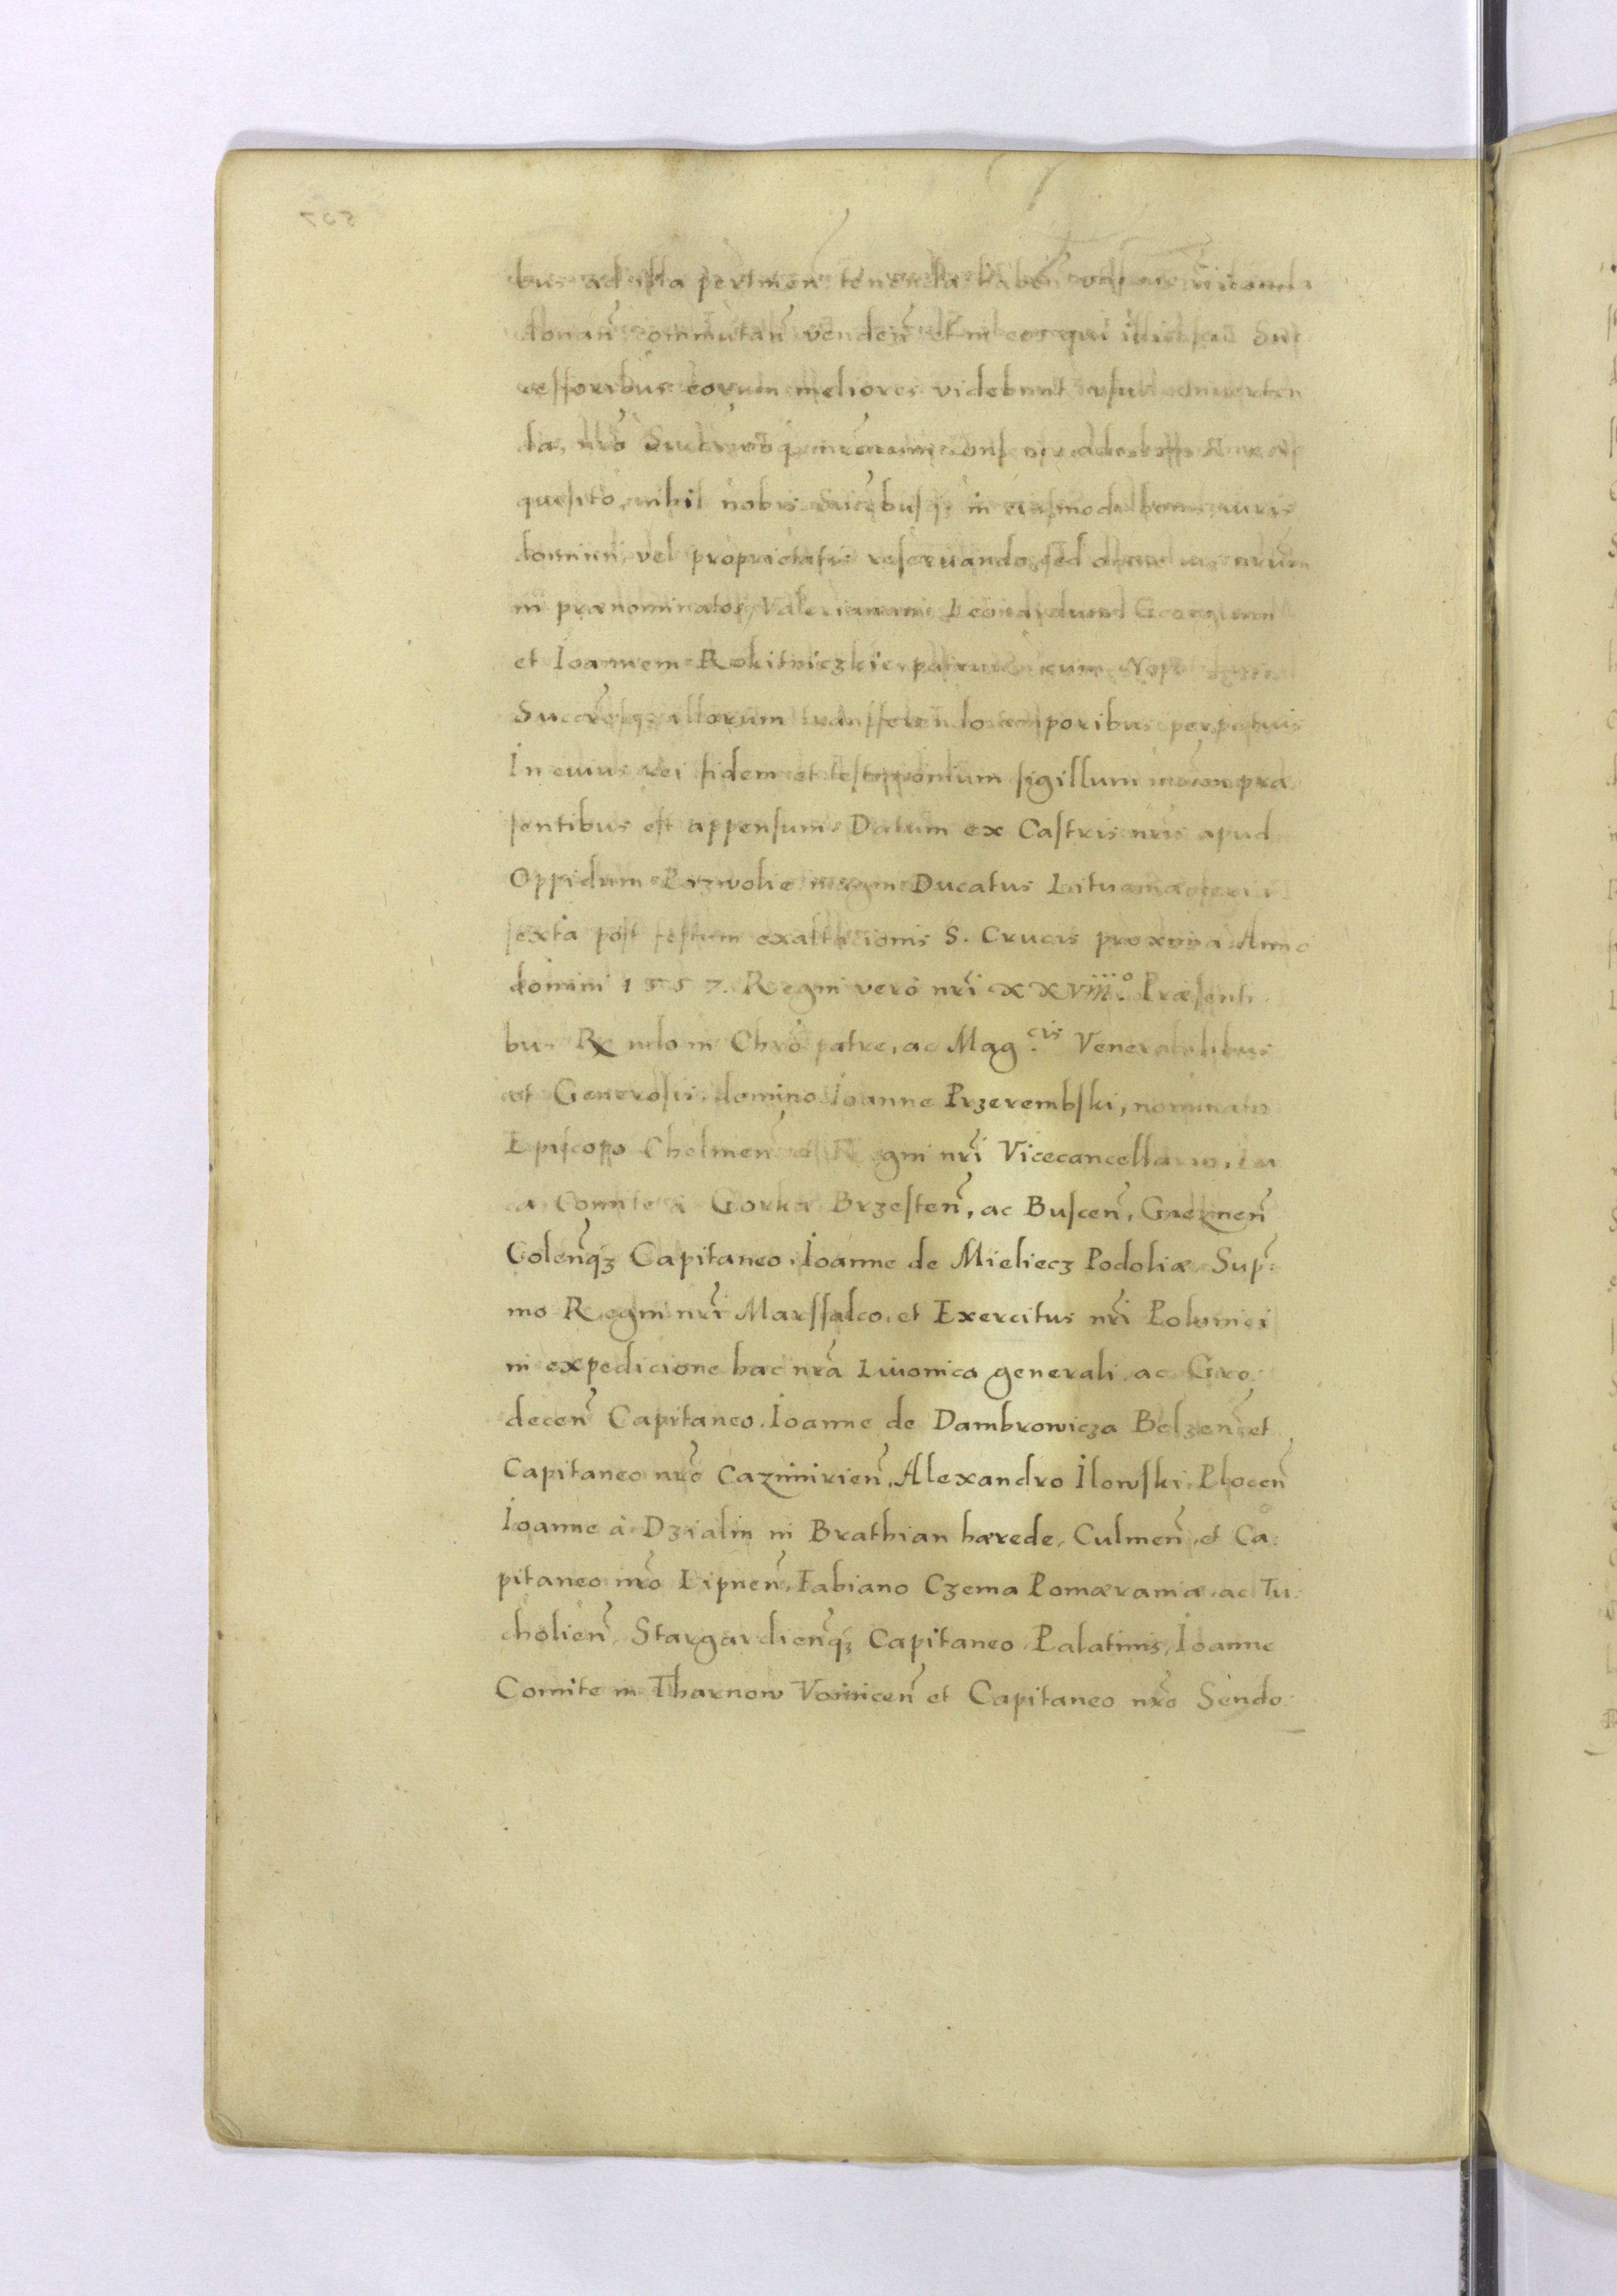 bus ad ista pertinen̄ tenenda haben̄
donan̄ commutan̄ venden̄ et in eos qui illis Suc
cessoribus eorum meliores videbunt usus conuerten
da, nrō
quesito, nihil nobis in eiusmodi bonis iuris
dominii, vel proprietatis reseruando, sed omne ius nrūm
in prænominatos, Valerianum, Leonardum, Georgium
et Ioannem Rokitniczkie patrueles eum
Succrēsqʒ illorum transferendo temporibus perpetuis
In cuius rei fidem et testimonium sigillum præ
sentibus est appensum. Datum ex Castris nrīs apud
Oppidum Pozwolie magni Ducatus Lituaniæ, feria
sexta post festum exaltacionis S. Crucis proxima Anno
domini 1557. Regni vero nrī XXVIIIº. Præsenti
bus Rndo in Chrō patre, ac Mag.cis Venerabilibus
et Generosis. domino Ioanne Przerembski, nominato
Episcopo Chelmen̄ et Regni nrī Vicecancellario, Lu
ca Comite à Gorka Brzesten̄, ac Buscen̄, Gnezn̄en̄
Colen̄qʒ Capitaneo. Ioanne de Mieliecz Podoliæ. Sup̄:
mo Regni nrī Marssalco, et Exercitus nrī Polonici
in expedicione hac nrā Liuonica generali ac Gro:
decen̄ Capitaneo. Ioanne de Dambrowicza Belzen̄ et
Capitaneo nrō Cazimirien̄. Alexandro Ilowski. Plocen̄
Ioanne à Dzialin in Brathian hærede, Culmen̄, et Ca:
pitaneo nrō Lipnen̄. Fabiano Czema Pomæraniæ, ac Tu:
cholien̄, Stargardien̄qʒ Capitaneo Palatinis, Ioanne
Comite in Tharnow Voinicen̄ et Capitaneo nrō Sendo: